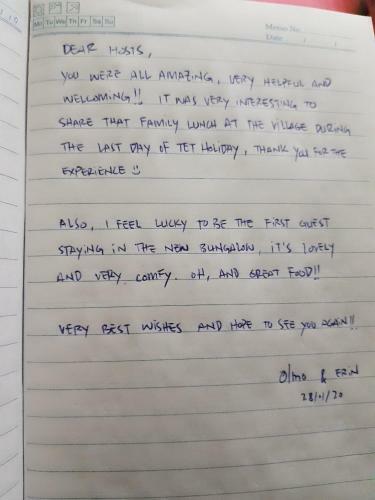 Mo Tu We Th Fr Sa Su
Memo No.
Date / /
DEAR HOSTS,
YOU WERE ALL AMAZING, VERY HELPFUL AND
WELLCOMING!! IT WAS VERY INTERESTING TO
SHARE THAT FAMILY LUNCH AT THE VILLAGE DURING
THE LAST DAY OF TET HOLIDAY, THANK YOU FOR THE
EXPERIENCE
ALSO, I FEEL LUCKY TO BE THE FIRST GUEST
STAYING IN THE NEW BUNGALOW, IT'S LOVELY
AND VERY COMFY. OH, AND GREAT FOOD!!
VERY BEST WISHES AND HOPE TO SEE YOU AGAIN!!
Olmo & ERIN
28/01/20